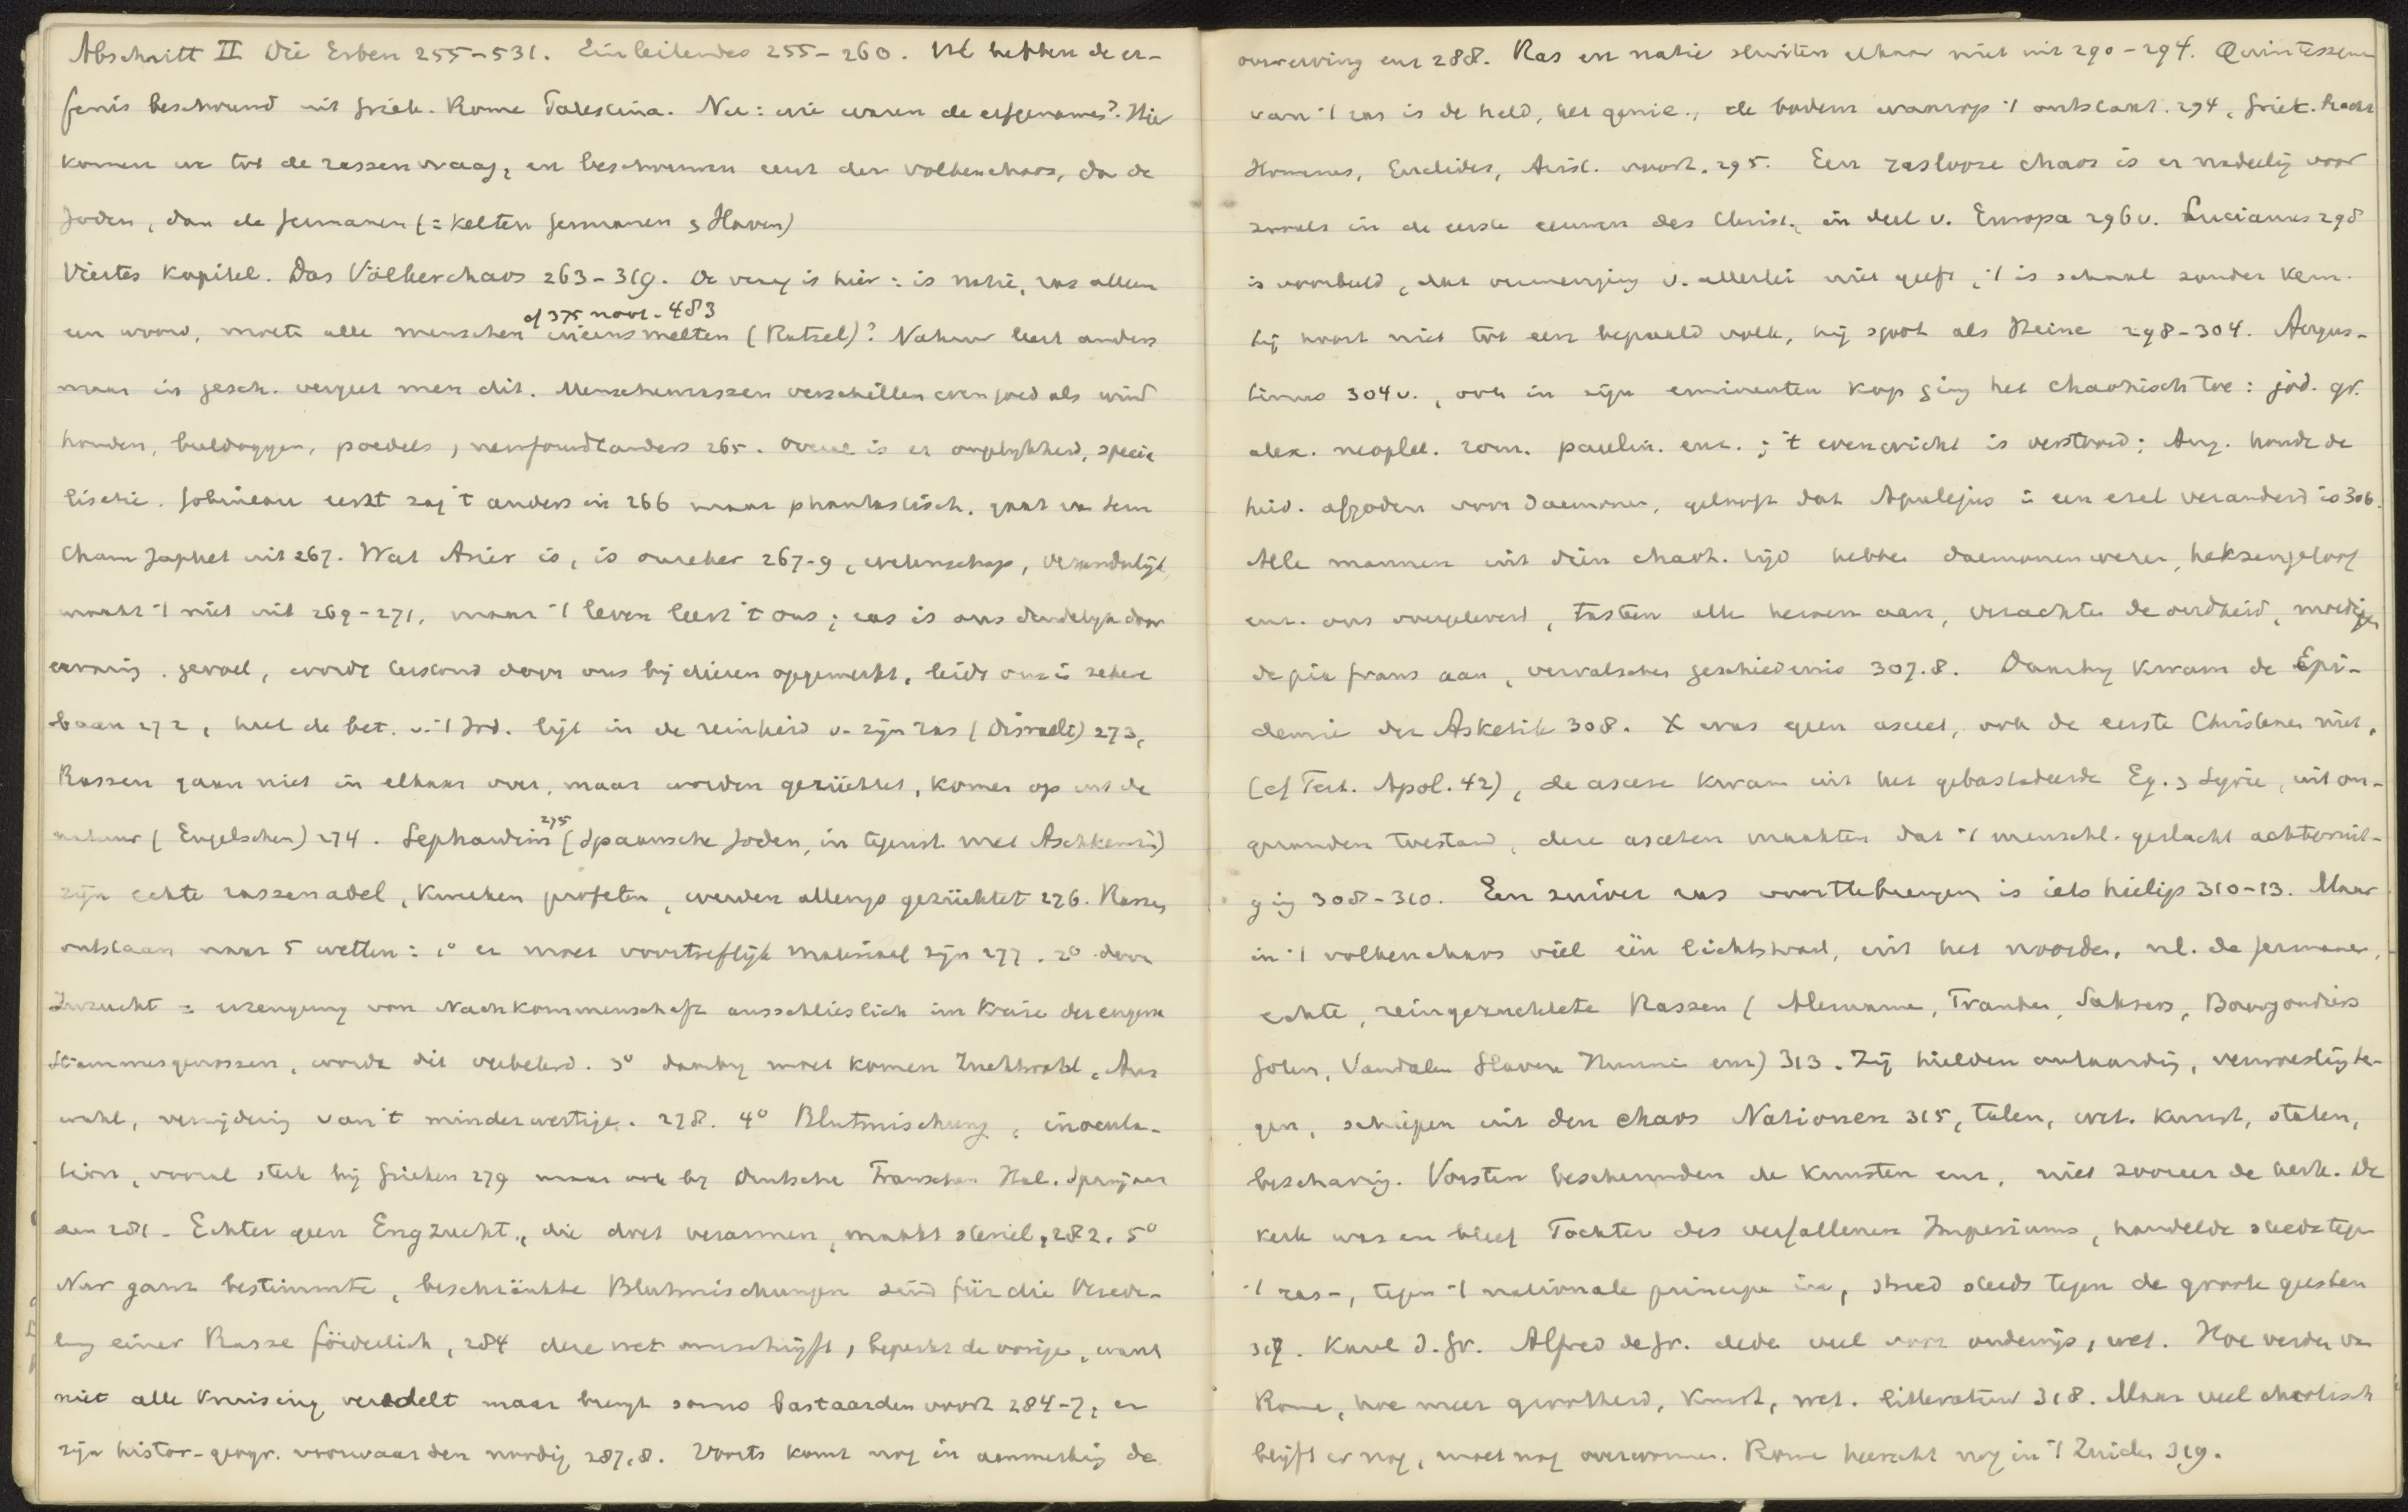 Abschnitt II Die Erben 255-531. Einleitendes 255-260. We hebben de er-
fenis beschouwd uit Griek. Rome Palestina. Nu: wie waren de erfgenamen? Hier
komen we tot de rassenvraag, en beschouwen eerst den volkenchaos, dan de
Joden, dan de Germanen (= Kelten Germanen & Slaven)
Viertes Kapitel. Das Völkerchaos 263-319. De vraag is hier: is natie, ras alleen
cf 375 noot. 483
een woord, moeten alle menschen ineensmelten (Ratzel)? Natuur leert anders
maar in gesch. vergeet men dit. Menschenrassen verschillen even goed als wind
honden, buldoggen, poedels, newfoundlanders 265. Overal is er ongelykheid, specia
listie. Gobineau eerst zag 't anders in 266 maar phantastisch, gaat van Sem
Cham Japhet uit 267. Wat Arier is, is onzeker 267-9, wetenschap,
maakt 't niet uit 269-271, maar 't leven leert 't ons; ras is ons duidelyk door
ervaring. gevoel, wordt terstond door ons bij dieren opgemerkt, leidt ons in zekere
baan 272, heel de bet. v. 't Jod. ligt in de reinheid v. zijn ras (Disraeli) 273,
Rassen gaan niet in elkaar over, maar worden gezüchtet, komen op uit de
275
natuur (Engelschen) 274. Sephardim (Spaansche Joden, in tegenst. met Aschkenazi)
zijn echte rassenadel, kweeken profeten, werden allengs gezüchtet 276. Rassen
ontstaan naar 5 wetten: 1° er moet voortreflijk materiaal zijn 277. 2° door
Inzucht = erzeugung von Nachkommenschaft ausschlieslich im Kreise der engern
Stammesgenossen, wordt dit veredeld. 3° daarby moet komen Zuchtwahl, Aus
wahl, vermijding van 't minderwertige. 278. 4° Blutmischung, inocula-
tion, vooral sterk bij Grieken 279 maar ook by Duitsche Franschen Ital. Spanjaar
den 281. Echter geen Engzucht, die doet verarmen, maakt steriel, 282. 5°
Nur ganz bestimmte, beschränkte Blutmischungen sind für die Vered-
lung einer Rasse förderlich, 284 deze wet omschrijft, beperkt de vorige, want
niet alle kruising veredelt maar brengt soms bastaarden voort 284-7, er
zijn histor-geogr. voorwaarden noodig 287.8. Voorts komt nog in aanmerking de
overerving enz 288. Ras en natie sluiten elkaar niet uit 290-294. Quintessens
van 't ras is de held, het genie, de bodem waarop 't ontstaat. 294, Griek. bracht
Homerus, Euclides, Arist. voort. 295. Een raslooze chaos is er nadeelig voor
zooals in de eerste eeuwen des Christ., in deel v. Europa 296 v. Lucianus 298
is voorbeeld, dat vermenging v. allerlei niet geeft, 't is schaal zonder kern.
hij hoort niet tot een bepaald volk, hij spot als Heine 298-304. Augus-
tinus 304 v., ook in zijn eminenten kop ging het chaotisch toe: jod. gr.
alex. neoplat. rom. paulin. enz.; 't evenwicht is verstoord; Aug. houdt de
heid. afgoden voor daemonen, gelooft dat Apulejus in een ezel veranderd is 306.
Alle mannen uit dien chaot. tijd hebben daemonenvrees, heksengeloof
enz. ons overgeleverd, tasten alle heroen aan, verachten de oudheid, moedigen
de pia fraus aan, vervalschen geschiedenis 307.8. Daarby kwam de Epi-
demie der Asketik 308. X was geen asceet, ook de eerste Christenen niet,
(cf Tert. Apol. 42), de ascese kwam uit het gebastardeerde Eg. & Syrie, uit on-
gezonden toestand, deze asceten maakten dat 't menschl. geslacht achteruit-
ging 308-310. Een zuiver ras voorttebrengen is iets heiligs 310-13. Maar
in 't volkenchaos viel één lichtstraal, uit het noorden, nl. de Germanen,
echte, reingezuchtete Rassen (Alemanne, Franken, Saksers, Bourgondiers
Goten, Vandalen Slaven Hunnen enz) 313. Zij hielden onbaardig, verwoestigte-
gen, schiepen uit den chaos Nationen 315, talen, wet. kunst, staten,
beschaving. Vorsten beschermden de kunsten enz, niet zoozeer de kerk. De
kerk was en bleef Tochter des verfallenen Imperiums, handelde steeds tegen
't ras-, tegen 't nationale principe in, streed steeds tegen de groote geesten
317. Karel d. Gr. Alfred de Gr. deden veel voor onderwijs, wet. Hoe verder van
Rome, hoe meer grootheid, kunst, wet. litteratuur 318. Maar veel chaotisch
blijft er nog, moet nog overwonnen. Rome heerscht nog in 't Zuiden 319.